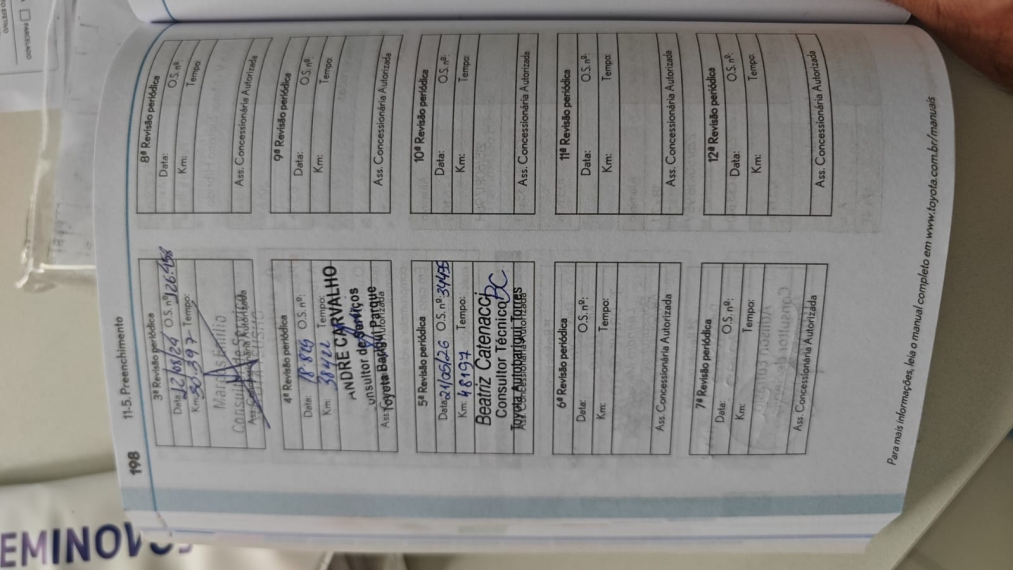 198
11-5. Preenchimento
3ª Revisão periódica
Data: 22/08/24 O.S. nº:
Km: 30.397 Tempo:
Consultor de Serviço
Ass. Concessionária Autorizada
4ª Revisão periódica
Data: O.S. nº:
Km: 38422 Tempo:
ANDRE CARVALHO
onsultor de Serviços
Toyota Barigui Parque
5ª Revisão periódica
Data: 21/05/26 O.S. nº: 34435
Km: 48197 Tempo:
Beatriz Catenacci
Consultor Técnico
Toyota Autobarigui Torres
6ª Revisão periódica
Data: O.S. nº:
Km: Tempo:
Ass. Concessionária Autorizada
7ª Revisão periódica
Data: O.S. nº:
Km: Tempo:
Ass. Concessionária Autorizada
8ª Revisão periódica
Data: O.S. nº:
Km: Tempo:
Ass. Concessionária Autorizada
9ª Revisão periódica
Data: O.S. nº:
Km: Tempo:
Ass. Concessionária Autorizada
10ª Revisão periódica
Data: O.S. nº:
Km: Tempo:
Ass. Concessionária Autorizada
11ª Revisão periódica
Data: O.S. nº:
Km: Tempo:
Ass. Concessionária Autorizada
12ª Revisão periódica
Data: O.S. nº:
Km: Tempo:
Ass. Concessionária Autorizada
Para mais informações, leia o manual completo em www.toyota.com.br/manuais
EMINOVOS
PARCELADO